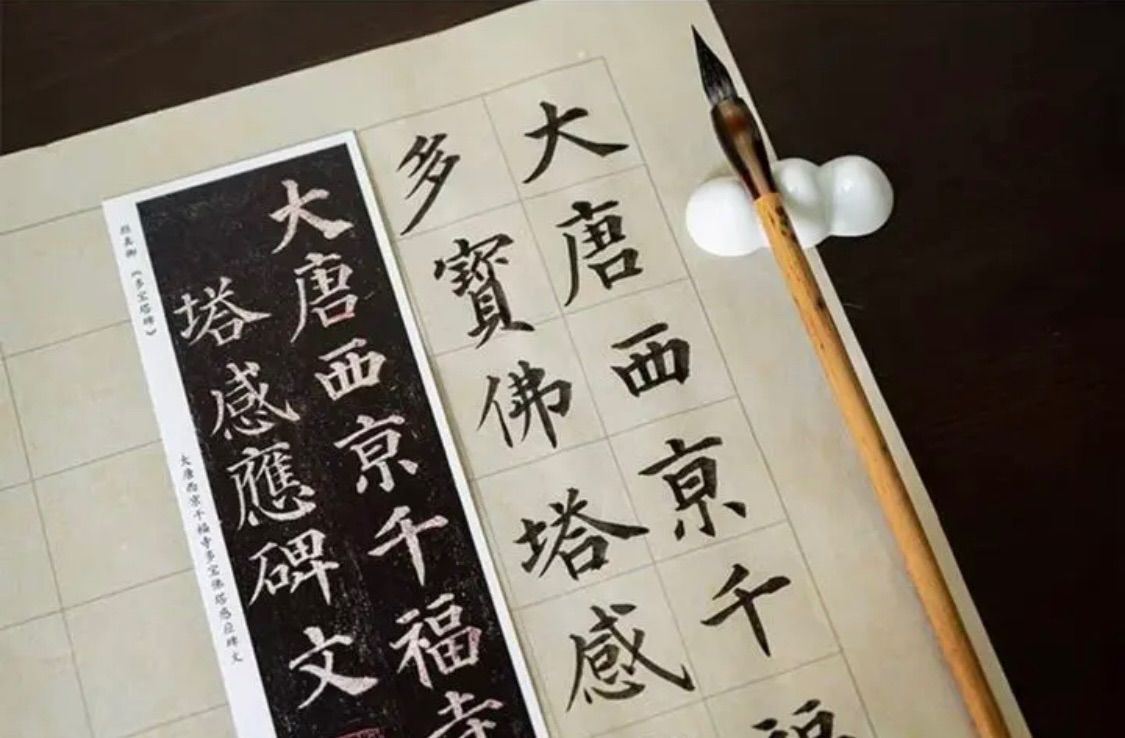 大唐西京千福
多寶佛塔感
大唐西京千福寺
塔感應碑文
颜真卿《多宝塔碑》
大唐西京千福寺多宝佛塔感应碑文